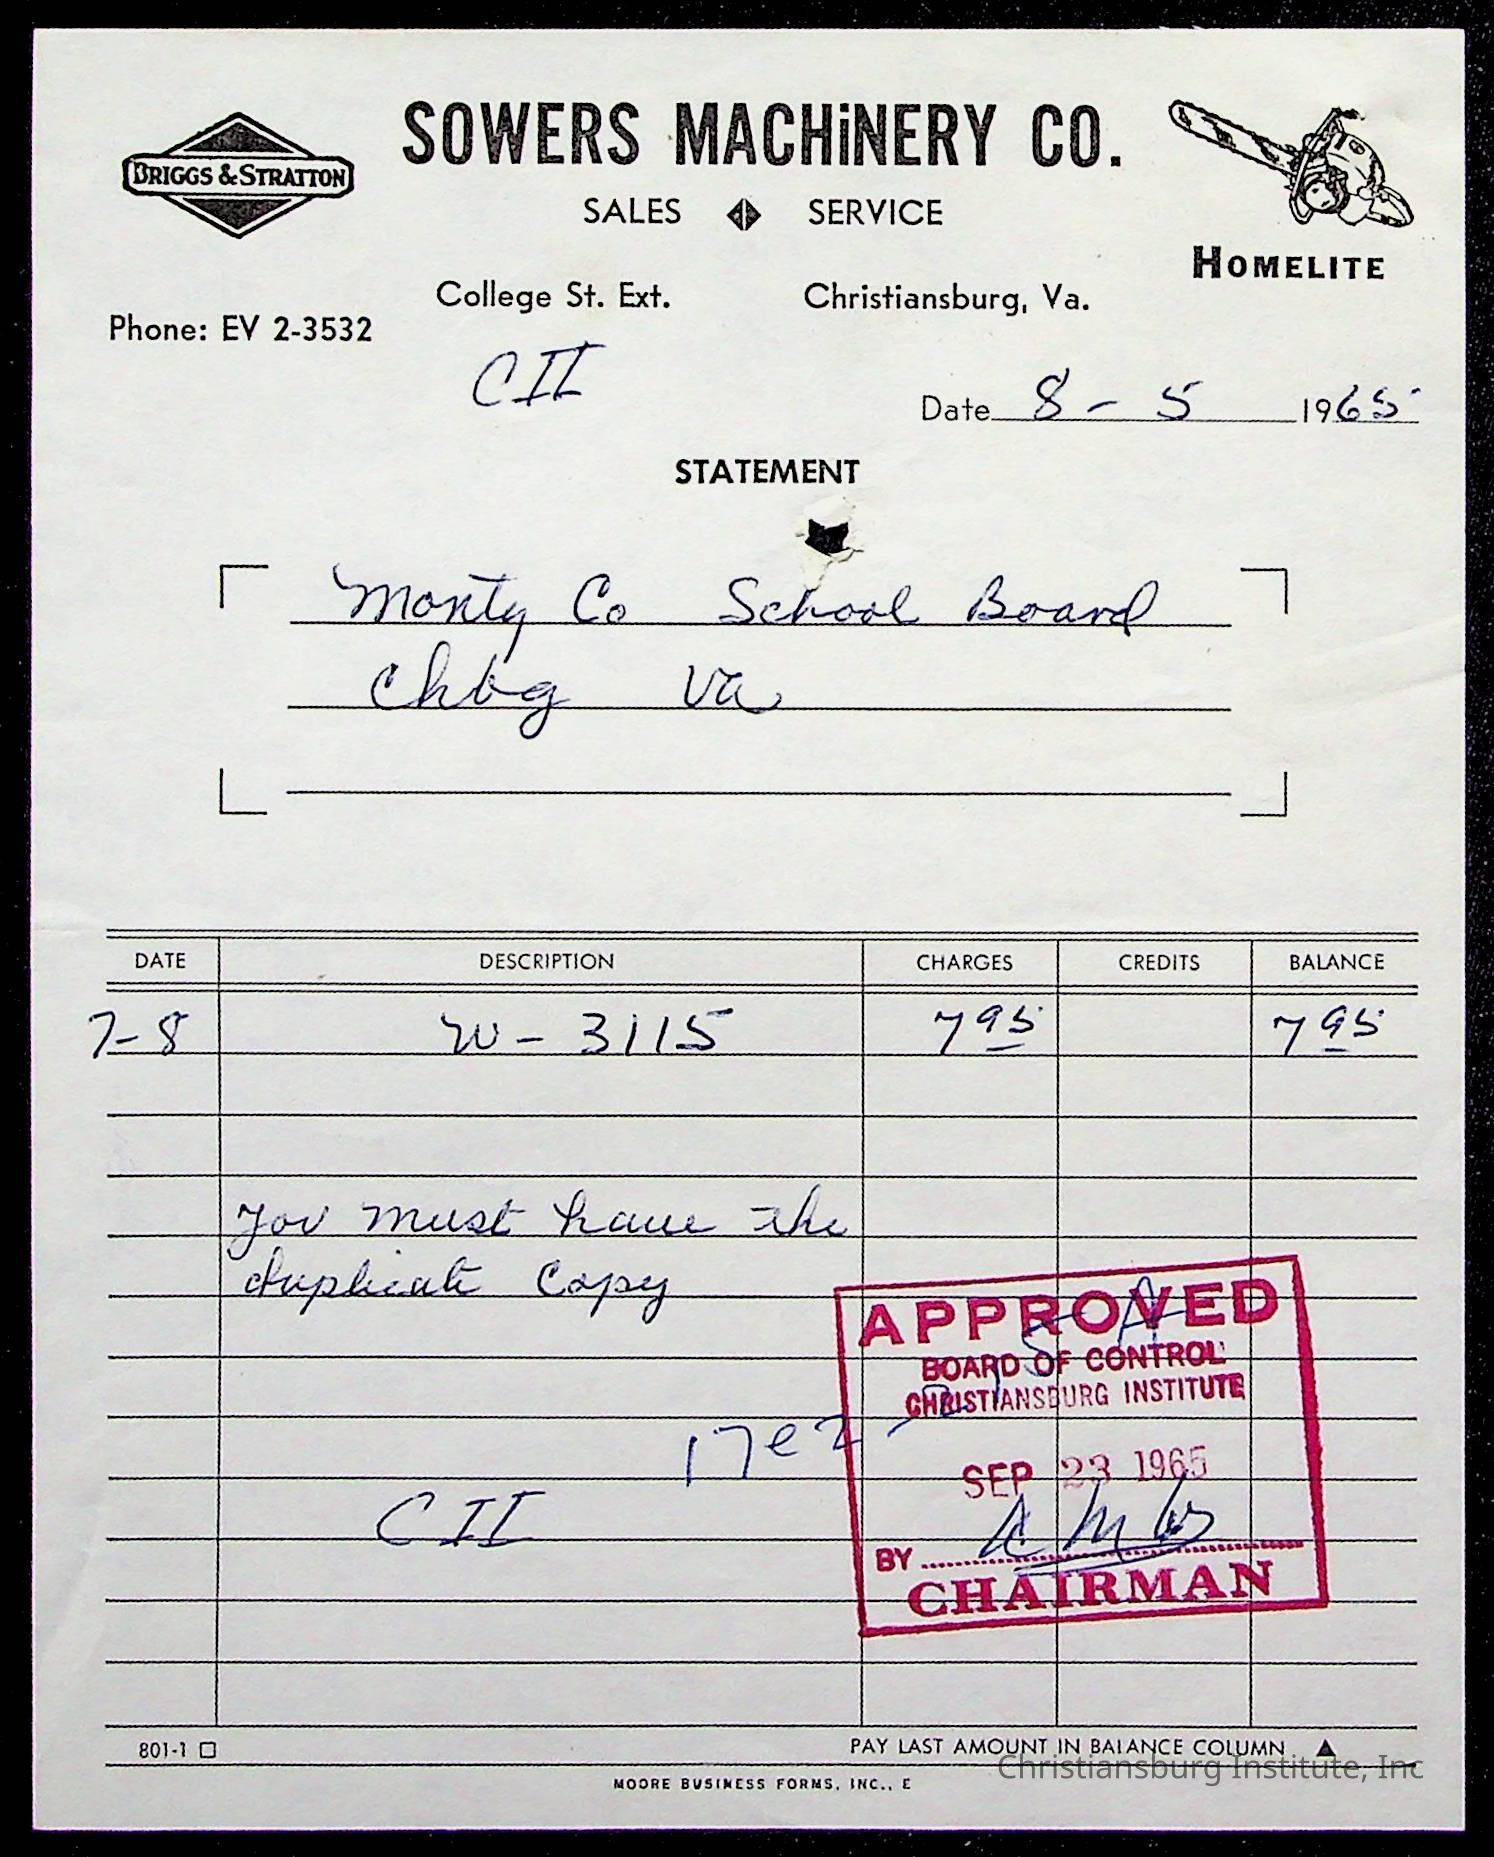 SOWERS MACHiNERY CO.
BRIGGS & STRATTON
SALES SERVICE
HOMELITE
College St. Ext. Christiansburg, Va.
Phone: EV 2-3532
CII
Date 8 - 5 1965
STATEMENT
Monty Co School Board
Chbg Va
DATE DESCRIPTION CHARGES CREDITS BALANCE
7-8 W - 3115 7 95 7 95
You must have the
duplicate Copy
APPROVED
BOARD OF CONTROL
CHRISTIANSBURG INSTITUTE
17e2
SEP 23 1965
CII
BY
CHAIRMAN
801-1
PAY LAST AMOUNT IN BALANCE COLUMN
Christiansburg Institute, Inc
MOORE BUSINESS FORMS, INC., E